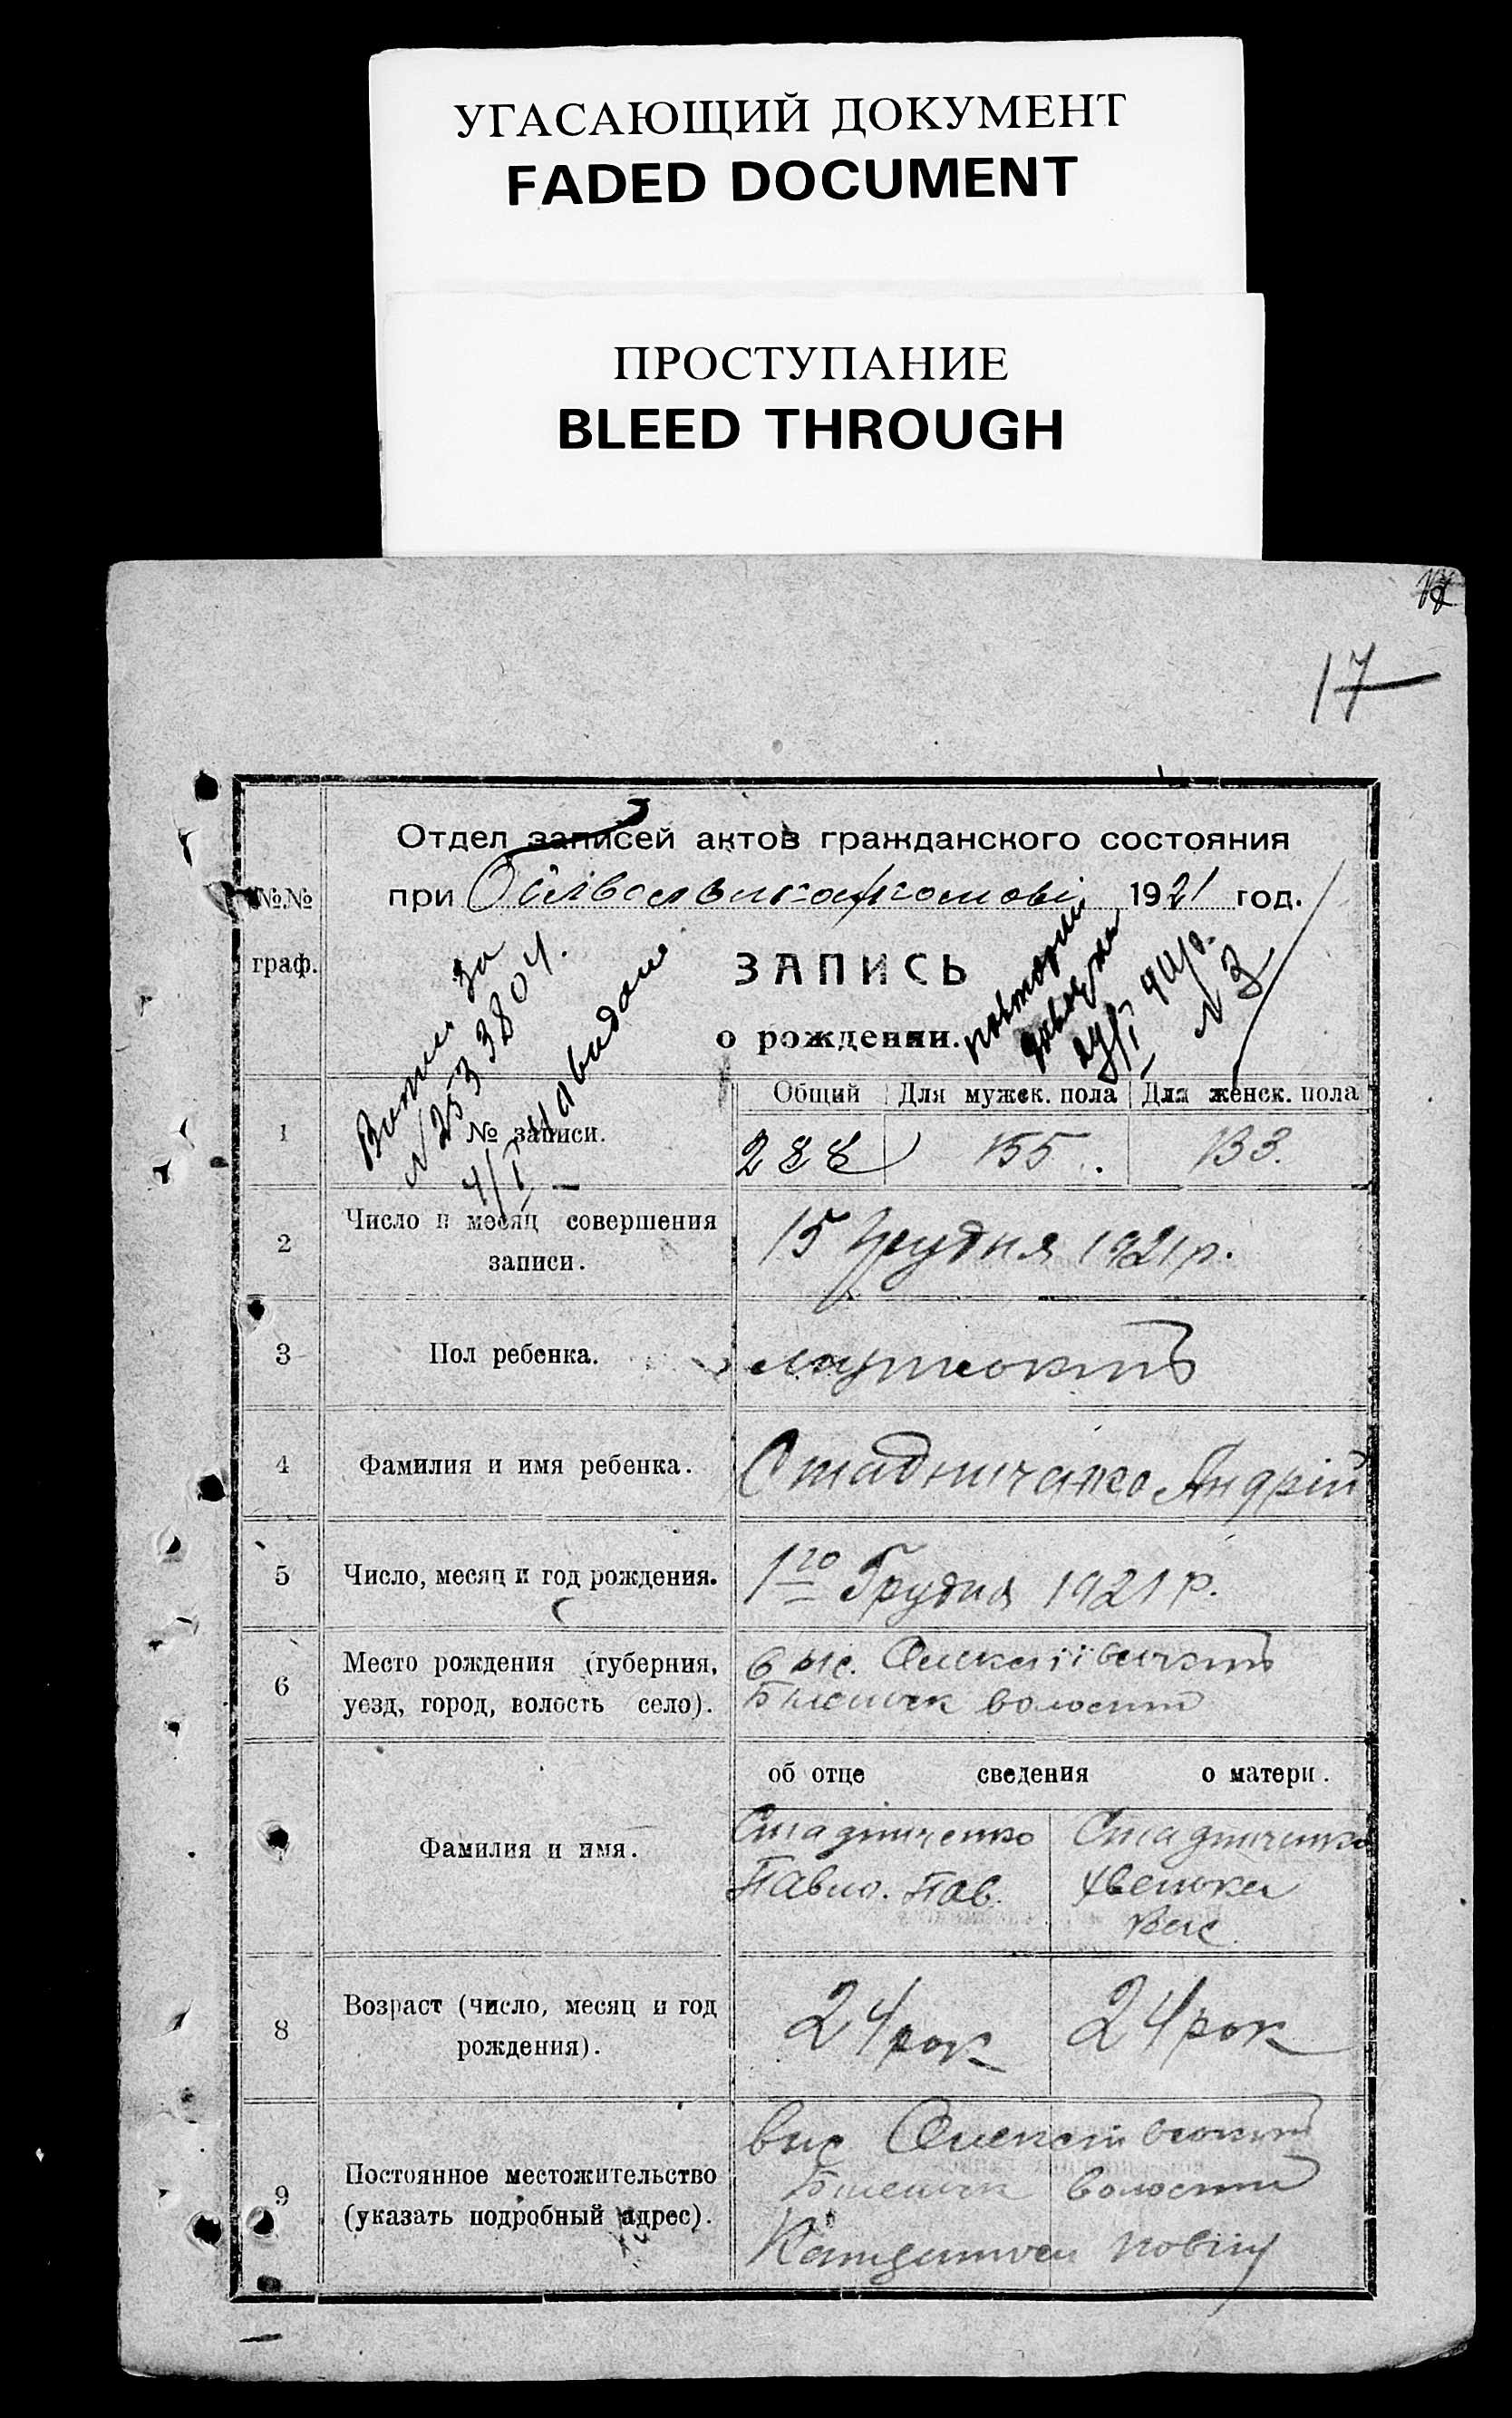 УГАСАЮЩИЙ ДОКУМЕНТ
FADED DOCUMENT
ПРОСТУПАНИЕ
BLEED THROUGH
17
Отдел записей актов гражданского состояния
при 1921 год.
№№
граф.
ЗАПИСЬ
о рождении.
Витяг за
№ 253804.
4/I видано
повторно
24/I 44 р.
№ 3
Общий Для мужск. пола Для женск. пола
1 № записи. 288 155. 133.
2 Число и месяц совершения
записи.
15 Грудня 1921 р.
3 Пол ребенка.
4 Фамилия и имя ребенка. Стадниченко Андрій
5 Число, месяц и год рождения. 1го Грудня 1921 р.
6 Место рождения (губерния,
уезд, город, волость село).
волости
об отце сведения о матери.
Фамилия и имя.
Стадниченко Стадниченко
Павло. Пав.
Вас.
8 Возраст (число, месяц и год
рождения).
24 рок 24 рок
9 Постоянное местожительство
(указать подробный адрес).
вис
волости
повіту